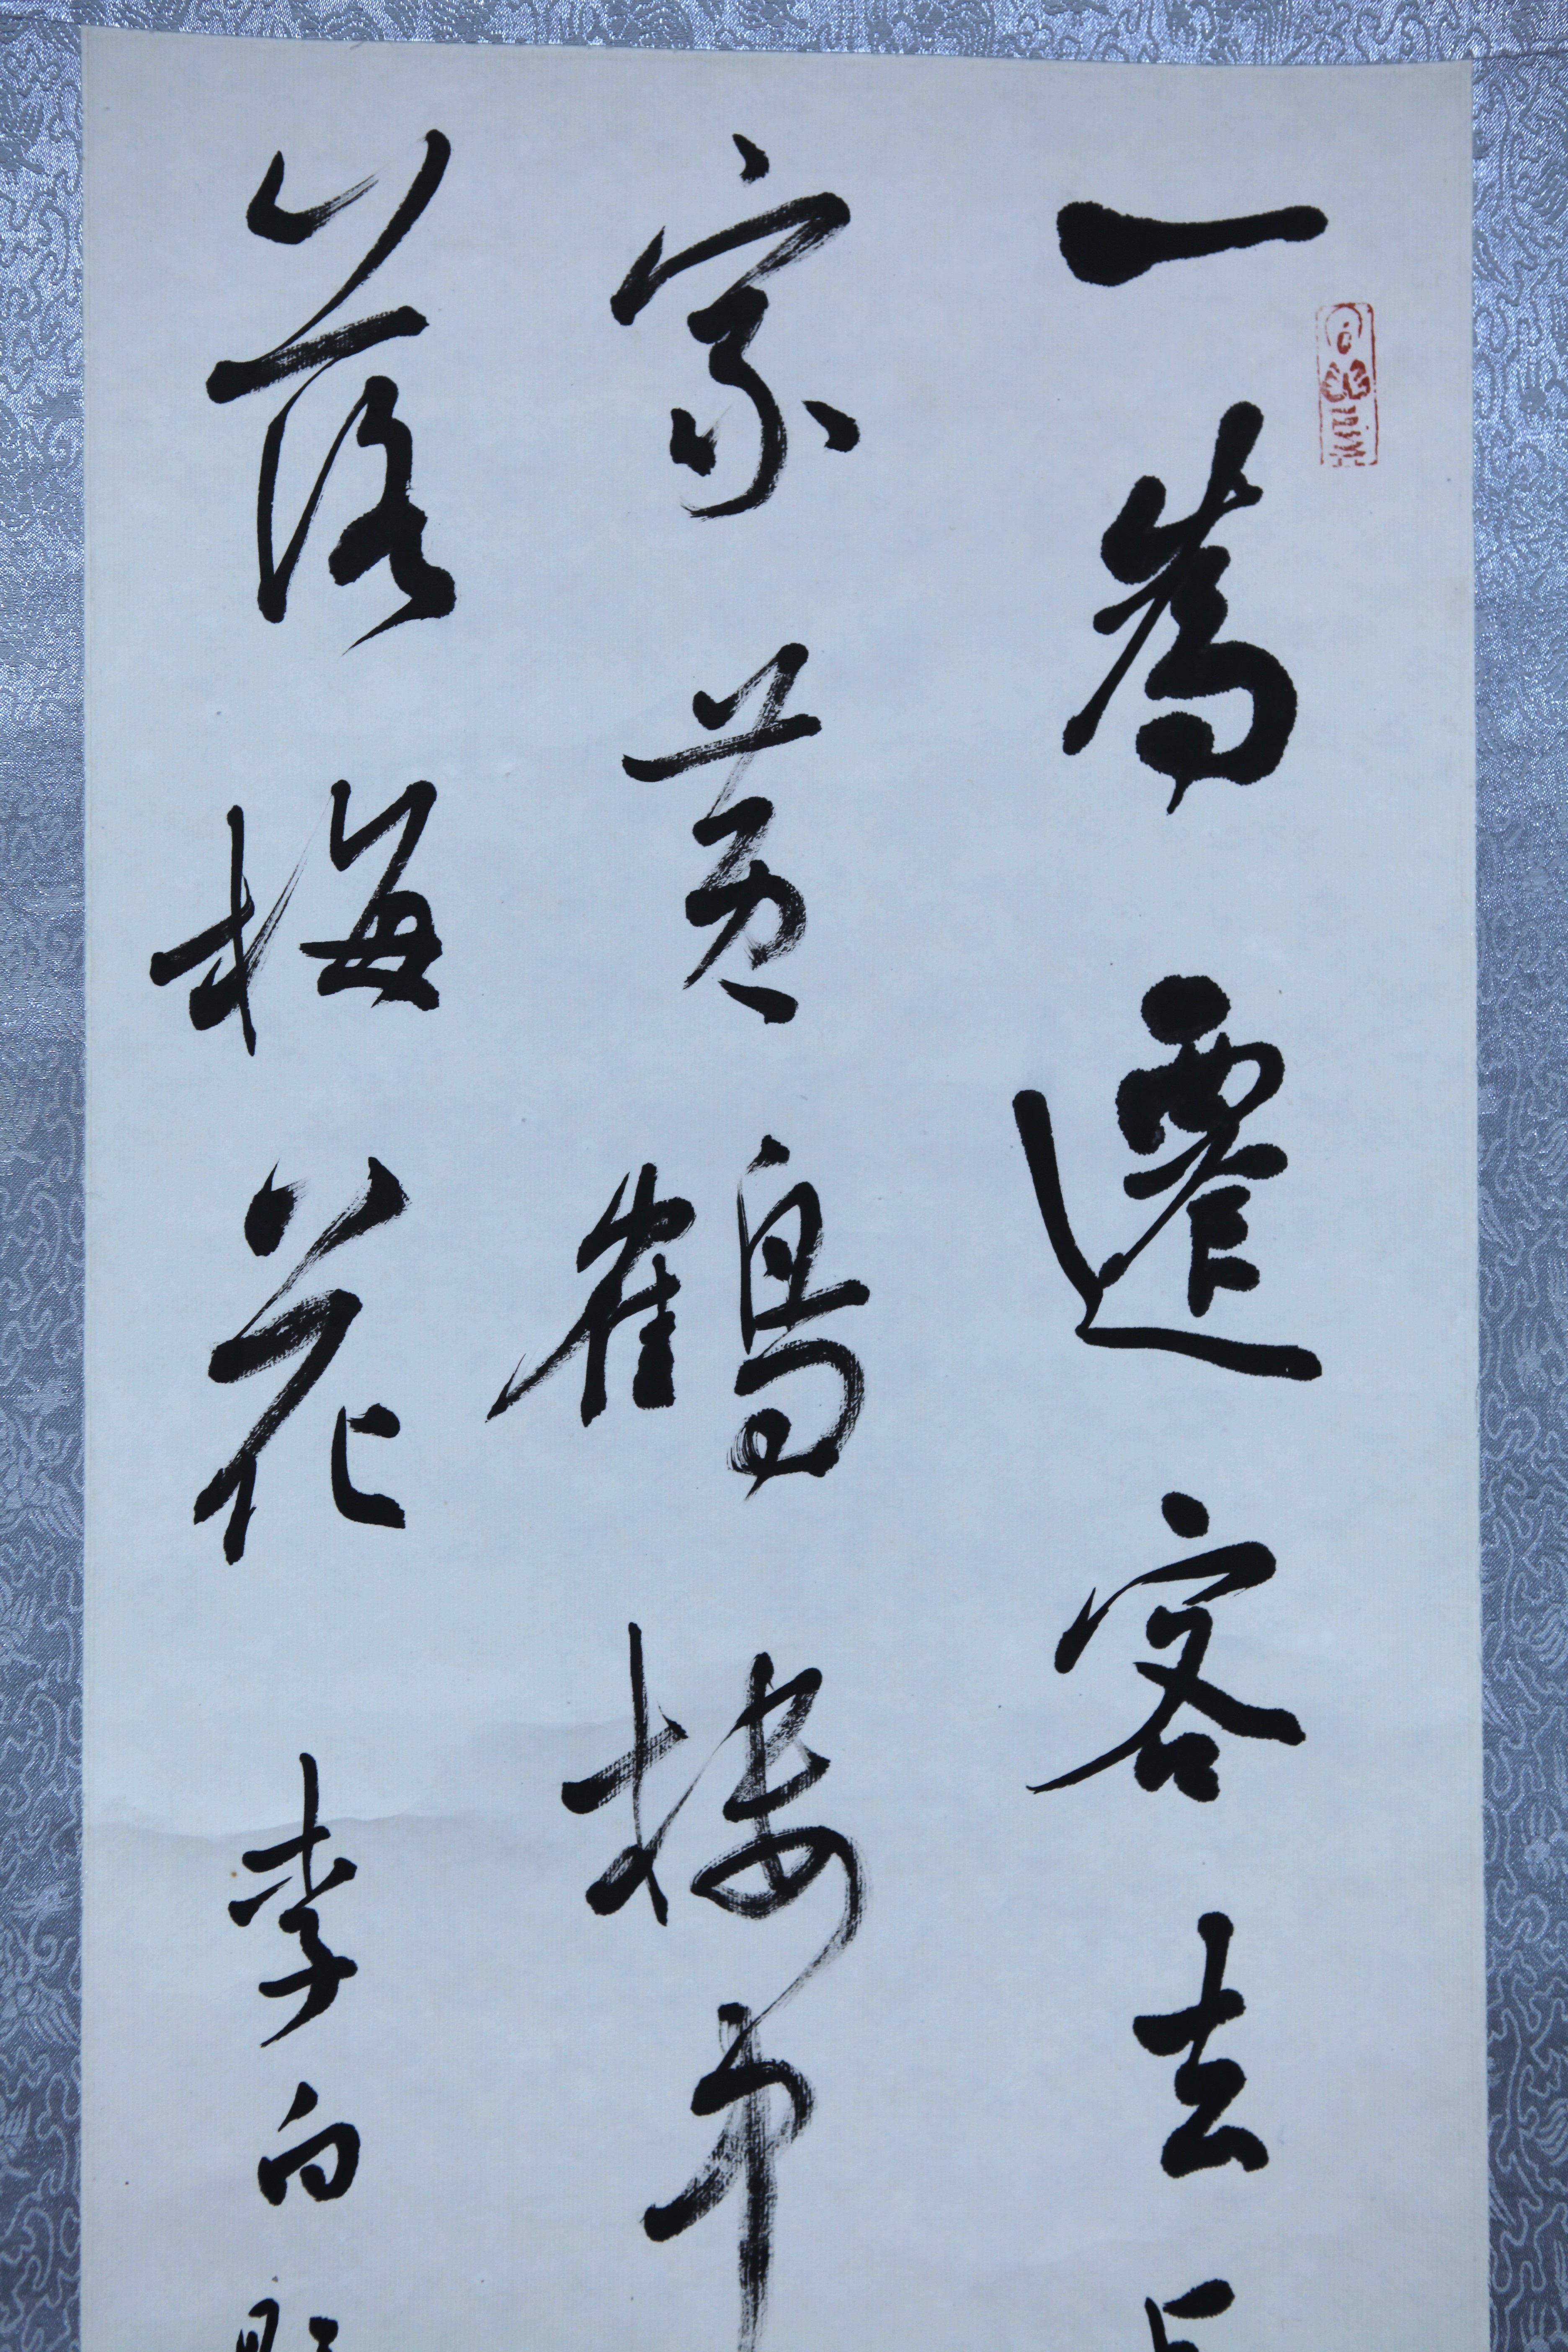 一為遷客去長
家黃鶴楼中
落梅花 李白